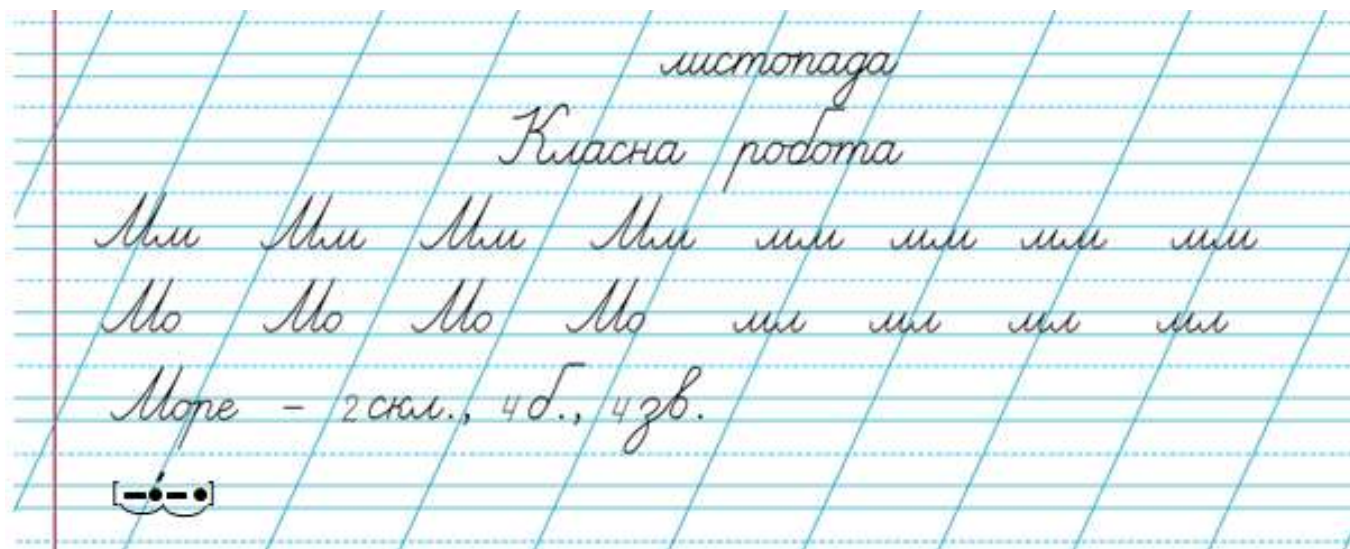 листопада
Класна робота
Мм Мм Мм Мм мм мм мм мм
Мо Мо Мо Мо мл мл мл мл
Море – 2 скл., 4 б., 4 зв.
[–•́–•]